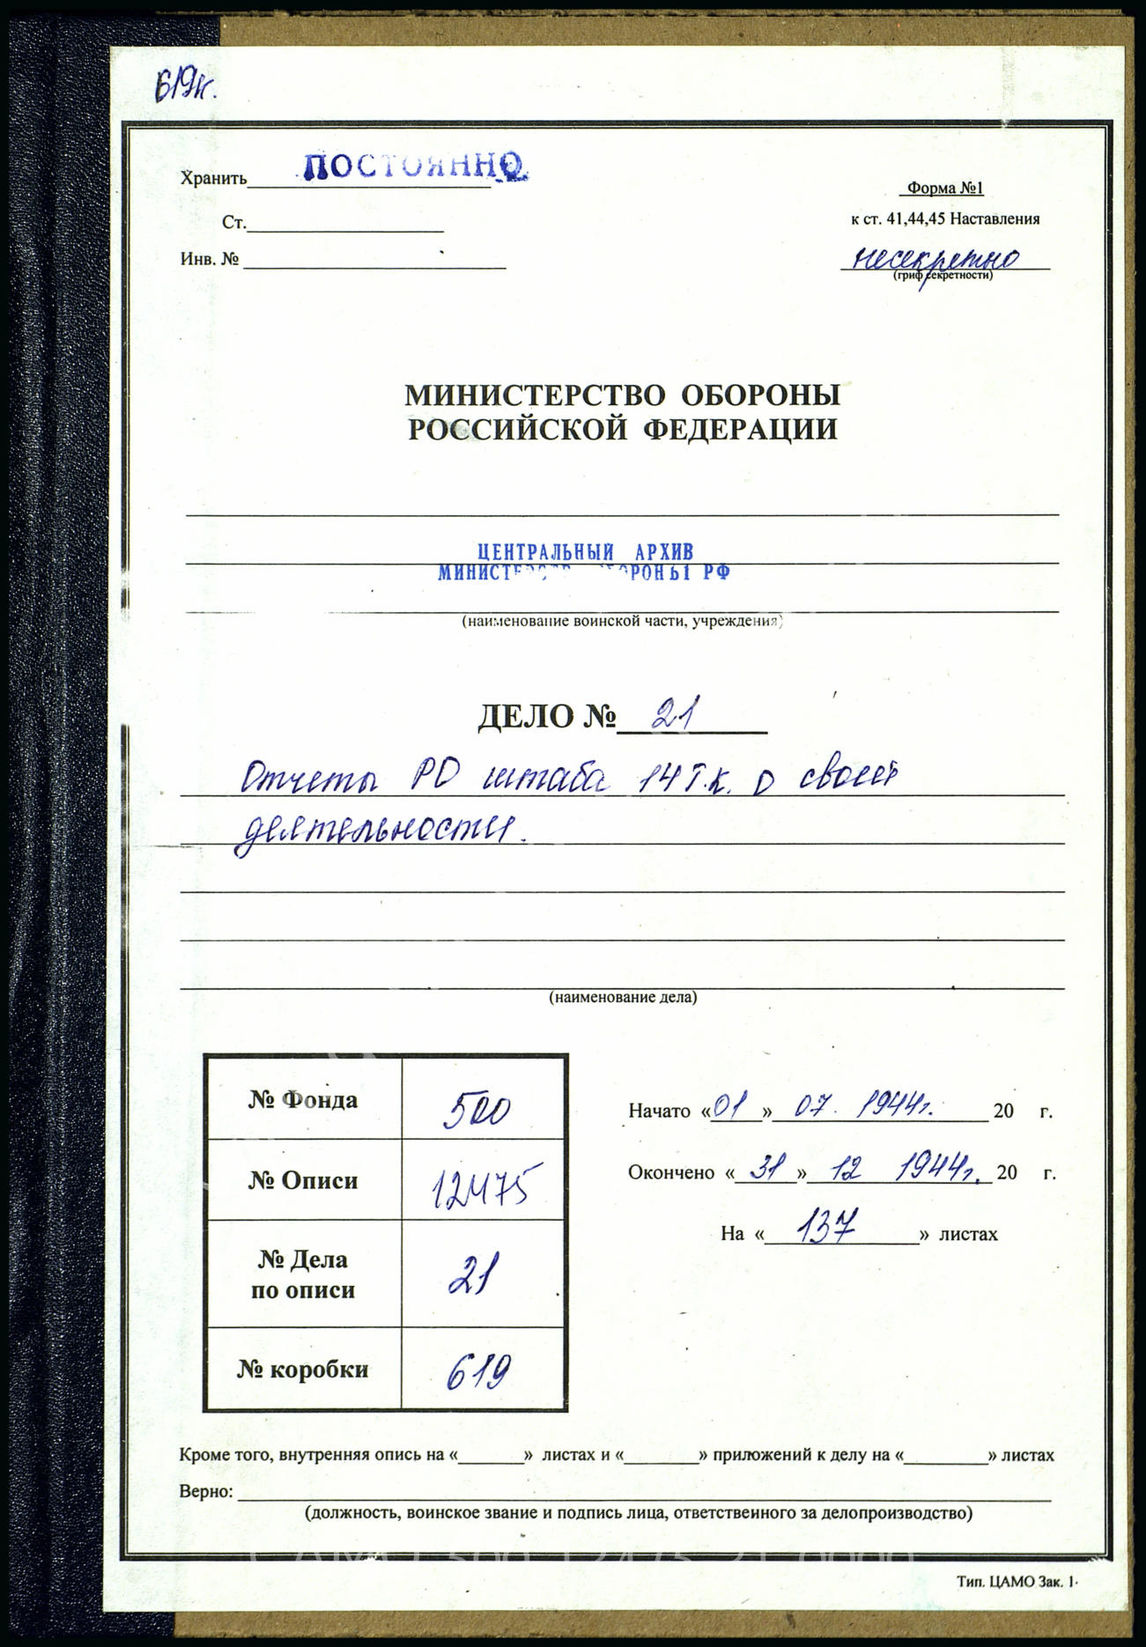 619к.
Хранить ПОСТОЯННО
Форма №1
Ст.
к ст. 41,44,45 Наставления
Инв. №
несекретно
(гриф секретности)
МИНИСТЕРСТВО ОБОРОНЫ
РОССИЙСКОЙ ФЕДЕРАЦИИ
ЦЕНТРАЛЬНЫЙ АРХИВ
МИНИСТЕРСТВА ОБОРОНЫ РФ
(наименование воинской части, учреждения)
ДЕЛО № 21
Отчеты РО штаба 14 т.к. о своей
деятельности.
(наименование дела)
№ Фонда 500
№ Описи 12475
№ Дела
по описи 21
№ коробки 619
Начато «01» 07. 1944г. 20 г.
Окончено «31» 12 1944г. 20 г.
На «137» листах
Кроме того, внутренняя опись на « » листах и « » приложений к делу на « » листах
Верно:
(должность, воинское звание и подпись лица, ответственного за делопроизводство)
Тип. ЦАМО Зак. 1